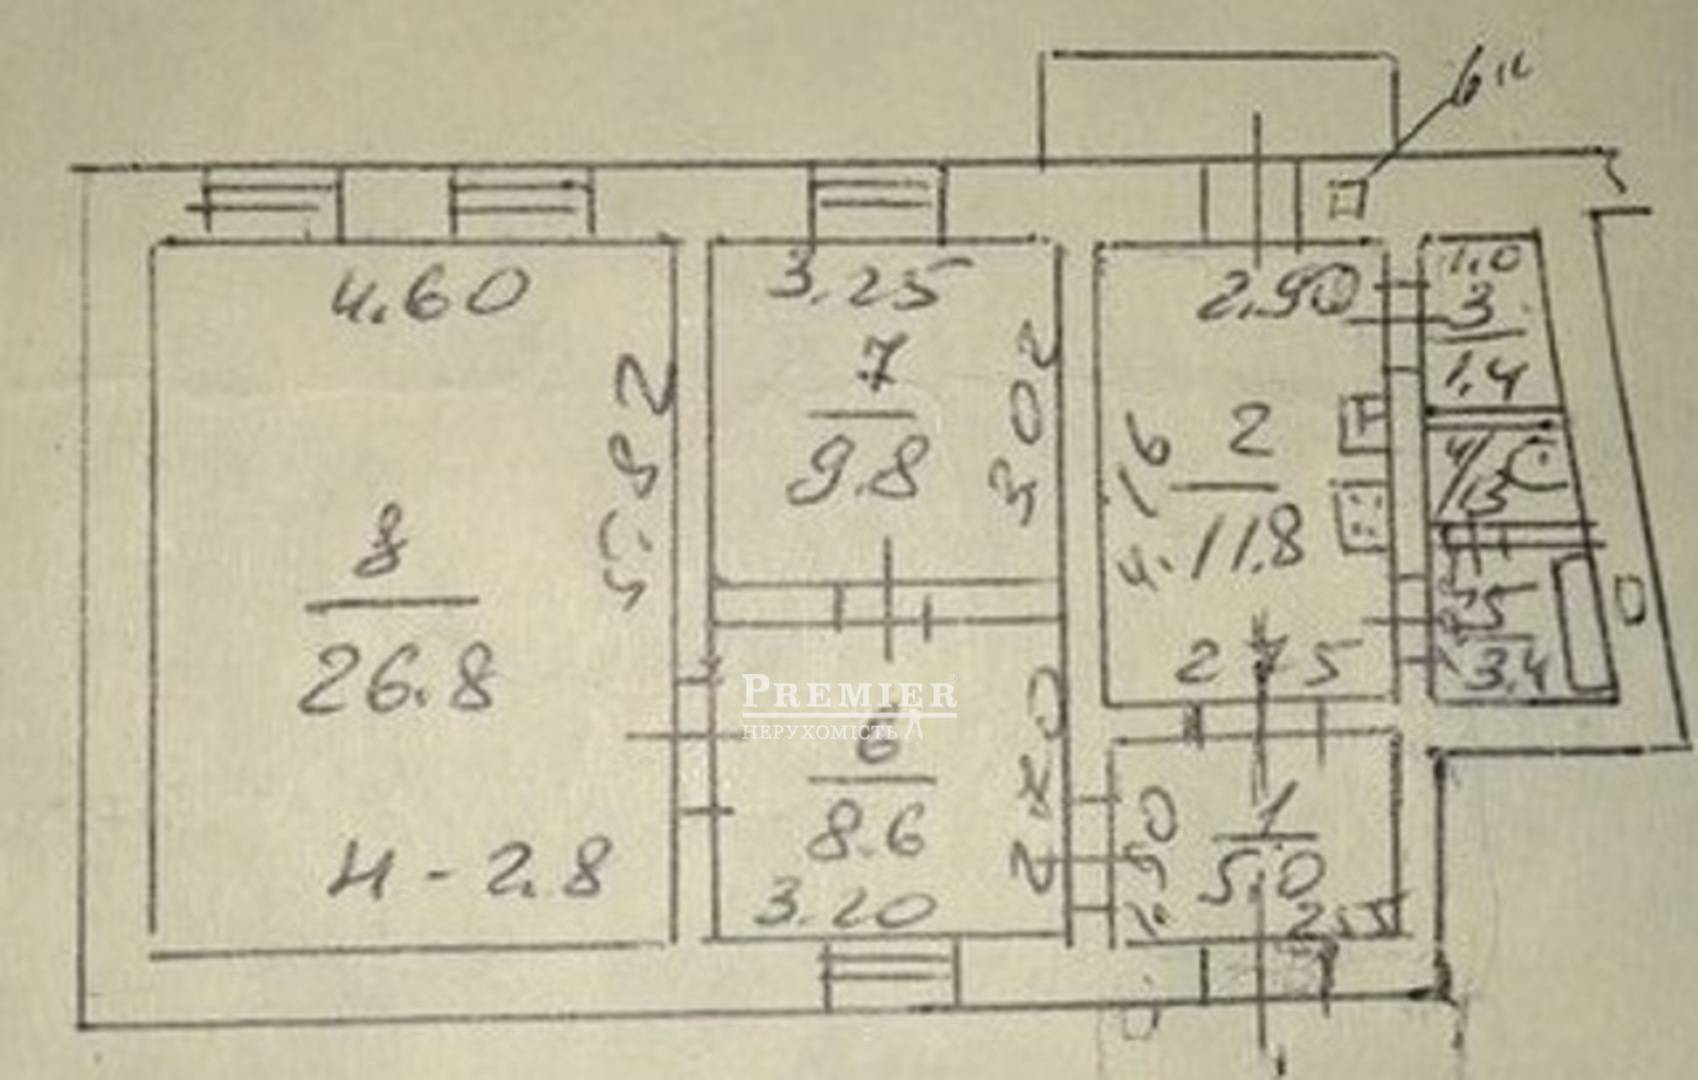 4.60
5.82
8
26.8
н - 2.8
3.25
7
9.8
3.02
6
8.6
3.20
2.70
2.90
2
11.8
4.16
2.75
1.0
3
1.4
4/1.3
5
3.4
1
5.0
PREMIER
НЕРУХОМІСТЬ